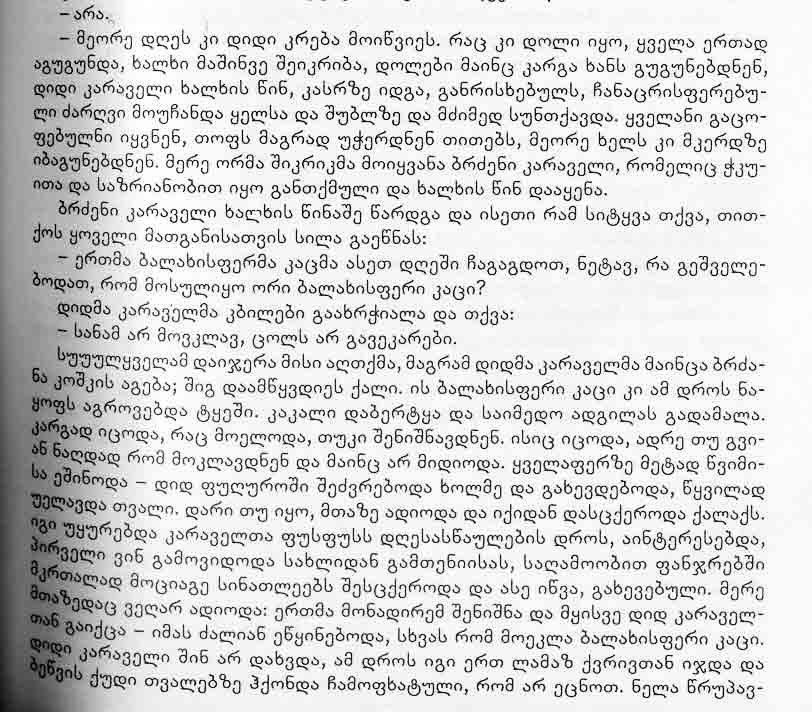 – არა.
– მეორე დღეს კი დიდი კრება მოიწვიეს. რაც კი დოლი იყო, ყველა ერთად
აგუგუნდა, ხალხი მაშინვე შეიკრიბა, დოლები მაინც კარგა ხანს გუგუნებდნენ,
დიდი კარაველი ხალხის წინ, კასრზე იდგა, განრისხებულს, ჩანაცრისფერებუ-
ლი ძარღვი მოუჩანდა ყელსა და შუბლზე და მძიმედ სუნთქავდა. ყველანი გაცო-
ფებულნი იყვნენ, თოფს მაგრად უჭერდნენ თითებს, მეორე ხელს კი მკერდზე
იბაგუნებდნენ. მერე ორმა შიკრიკმა მოიყვანა ბრძენი კარაველი, რომელიც ჭკუ-
ითა და საზრიანობით იყო განთქმული და ხალხის წინ დააყენა.
ბრძენი კარაველი ხალხის წინაშე წარდგა და ისეთი რამ სიტყვა თქვა, თით-
ქოს ყოველი მათგანისათვის სილა გაეწნას:
– ერთმა ბალახისფერმა კაცმა ასეთ დღეში ჩაგაგდოთ, ნეტავ, რა გეშველე-
ბოდათ, რომ მოსულიყო ორი ბალახისფერი კაცი?
დიდმა კარაველმა კბილები გაახრჭიალა და თქვა:
– სანამ არ მოვკლავ, ცოლს არ გავეკარები.
სუუულყველამ დაიჯერა მისი აღთქმა, მაგრამ დიდმა კარაველმა მაინცა ბრძა-
ნა კოშკის აგება; შიგ დაამწყვდიეს ქალი. ის ბალახისფერი კაცი კი ამ დროს ნა-
ყოფს აგროვებდა ტყეში. კაკალი დაბერტყა და საიმედო ადგილას გადამალა.
კარგად იცოდა, რაც მოელოდა, თუკი შენიშნავდნენ. ისიც იცოდა, ადრე თუ გვი-
ან ნაღდად რომ მოკლავდნენ და მაინც არ მიდიოდა. ყველაფერზე მეტად წვიმი-
სა ეშინოდა – დიდ ფუღუროში შეძვრებოდა ხოლმე და გახევდებოდა, წყვილად
უელავდა თვალი. დარი თუ იყო, მთაზე ადიოდა და იქიდან დასცქეროდა ქალაქს.
იგი უყურებდა კარაველთა ფუსფუსს დღესასწაულების დროს, აინტერესებდა,
პირველი ვინ გამოვიდოდა სახლიდან გამთენიისას, საღამოობით ფანჯრებში
მკრთალად მოციაგე სინათლეებს შესცქეროდა და ასე იწვა, გახევებული. მერე
მთაზედაც ვეღარ ადიოდა: ერთმა მონადირემ შენიშნა და მყისვე დიდ კარაველ-
თან გაიქცა – იმას ძალიან ეწყინებოდა, სხვას რომ მოეკლა ბალახისფერი კაცი.
დიდი კარაველი შინ არ დახვდა, ამ დროს იგი ერთ ლამაზ ქვრივთან იჯდა და
ბეწვის ქუდი თვალებზე ჰქონდა ჩამოფხატული, რომ არ ეცნოთ. ნელა წრუპავ-